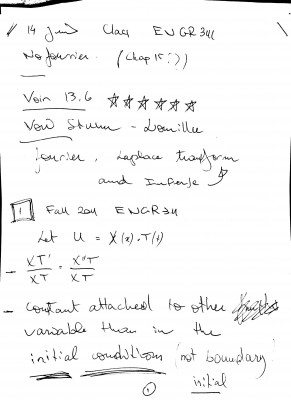 14 Class ENGR 311
No fourier. (Chap 15 :))
Voir 13.6 ☆☆☆☆☆☆
Voir Sturm - Liouville
fourier, Laplace transform
and Inverse
1 Fall 2011 ENGR 311
Let U = X(x) · T(t)
- XT'/XT = X"T/XT
- Constant attached to other
variable than in the
initial conditions (not boundary)
initial
1